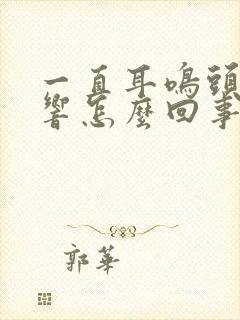 一直耳鳴頭
響怎麼回事
郭華